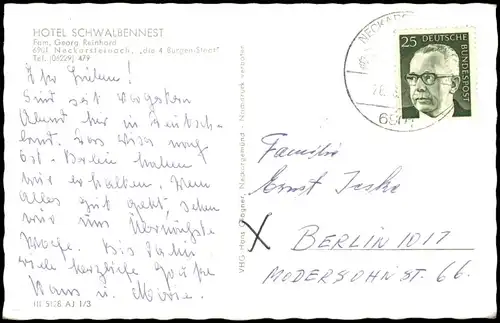 HOTEL SCHWALBENNEST
Fam. Georg Reinhard
6901 Neckarsteinach, „die 4 Burgen-Stadt"
Tel. (06229) 479
Ihr Lieben!
Sind seit vorgestern
Abend hier in Deutsch-
land. Das Visa nach
Ost-Berlin haben
wir erhalten. Wenn
alles gut geht, sehen
wir uns übernächste
Woche. Bis dahin
viele herzliche Grüße
Hans u.
III 5128 AJ 1/3
VHG Hans Wagner, Neckargemünd - Nachdruck verboten
25
DEUTSCHE
BUNDESPOST
Familie
Ernst Jeske
BERLIN 1017
MODERSOHNST. 66.